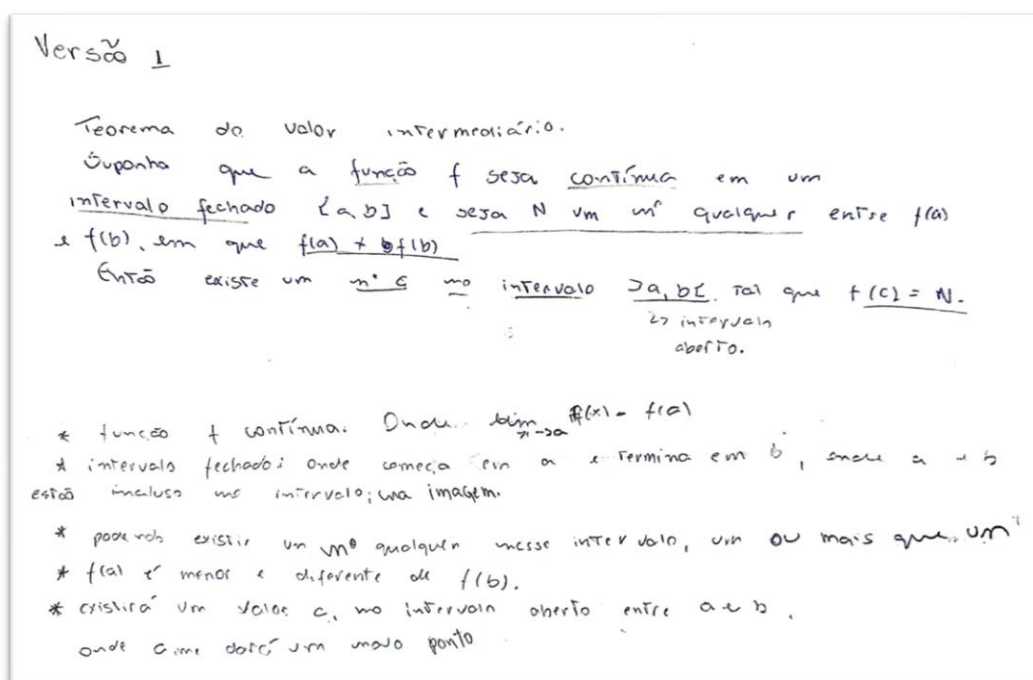 Versão 1
Teorema do valor intermediário.
Suponha que a função f seja contínua em um
intervalo fechado [a b] e seja N um nº qualquer entre f(a)
e f(b), em que f(a) ≠ f(b)
Então existe um nº c no intervalo ]a, b[. Tal que f(c) = N.
↳ intervalo
aberto.
* função f contínua. Onde lim x→a f(x) = f(a)
* intervalo fechado: onde começa em a e termina em b, onde a e b
estão incluso no intervalo; na imagem.
* poderá existir um nº qualquer nesse intervalo, um ou mais que um
* f(a) é menor e diferente de f(b).
* existirá um valor c, no intervalo aberto entre a e b.
onde c me dará um novo ponto